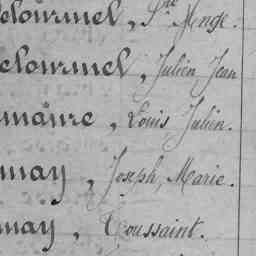 elourmel, Ste Ange.
elourmel, Julien Jean
maire, Louis, Julien.
may, Joseph, Marie.
may, Toussaint.